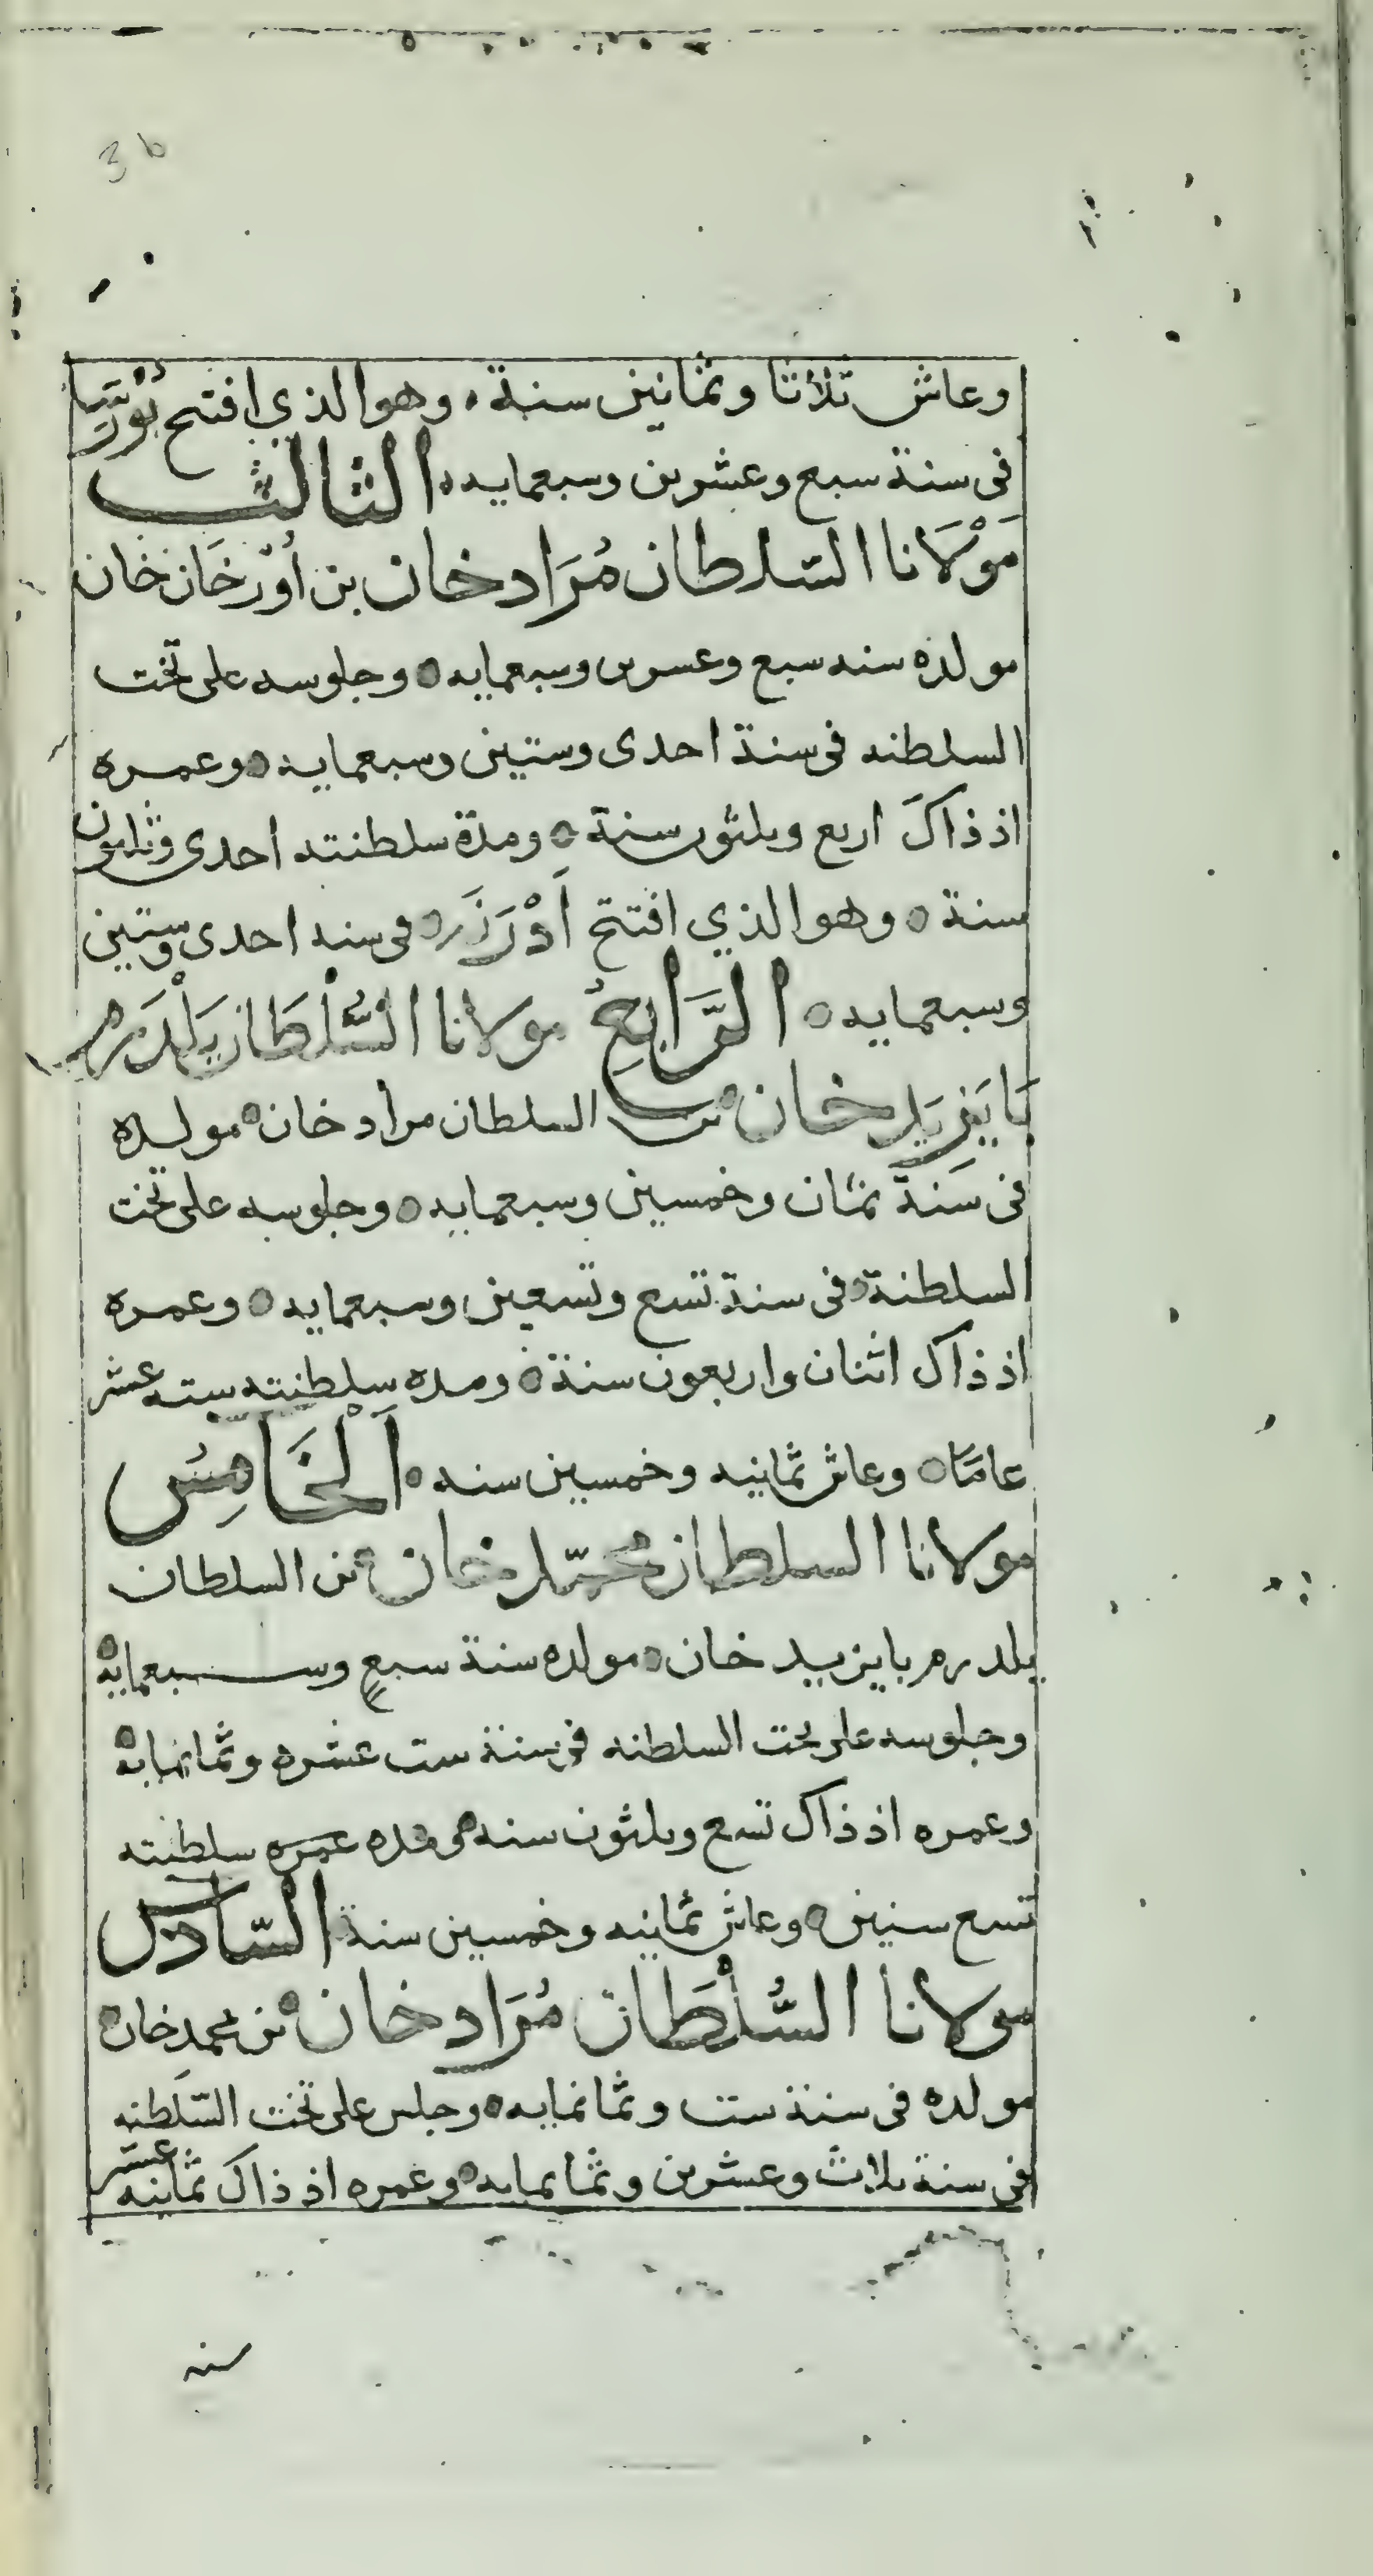 3b
وعاش ثلاثا وثمانين سنة، وهو الذي افتتح
فى سنة سبع وعشرين وسبعمايه، الثالث
مَوْلَانا السّلطان مُرَاد خان بن اُوْرخَان خان
مولده سنه سبع وعسرىں وسبعمايه ه وجلوسه على تخت
السلطنه فى سنة احدى وستين وسبعمايه ه وعمره
اذ ذاكَ اربع وىلىون سنة ه ومدة سلطنته احدى وثلىون
سنة ه وهو الذي افتتح اَدْرَنَه فى سنه احدى وستين
وسبعمايه ه الرَّابعُ مولانا السُّلْطَان يَلْدَرم
بَايَزِيَد خان ه بن السلطان مراد خان ه مولده
فى سَنة ثمان وخمسين وسبعمايه ه وجلوسه على تخت
السلطنة فى سنة تسع وتسعين وسبعمايه ه وعمره
اذ ذاك اثنان واربعون سنة ه ومده سلطنته سته عشر
عامًا ه وعاش ثمانيه وخمسين سنه ه اَلْخَامِسُ
مولانا السلطان محمّد خان ه بن السلطان
يلدرم بايزيد خان ه مولده سنة سبعٍ وسبعمايه
وجلوسه على تخت السلطنه فى سنة ست عشره وثمانمايه
وعمره اذ ذاك تسع وىلىون سنه ومده عمره سلطنته
تسع سنين ه وعاش ثمانيه وخمسين سنة السّادس
مولانا السُّلْطَان مُرَاد خان ه بن محمد خان ه
مولده فى سنة ست وثمانمايه ه وجلس على تخت السّلطنه
فى سنة ثلاث وعشرين وثمانمايه ه وعمره اذ ذاك ثمانيه عشر
سنه